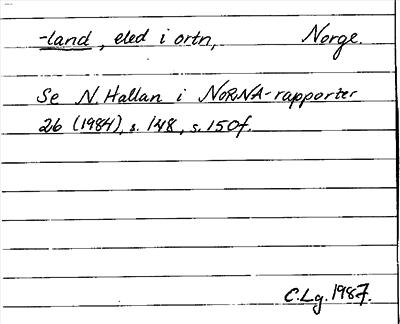 -land, eled i ortn, Norge.
Se N. Hallan i NORNA-rapporter
26 (1984), s. 148, s. 150f.
C.Lg. 1987.